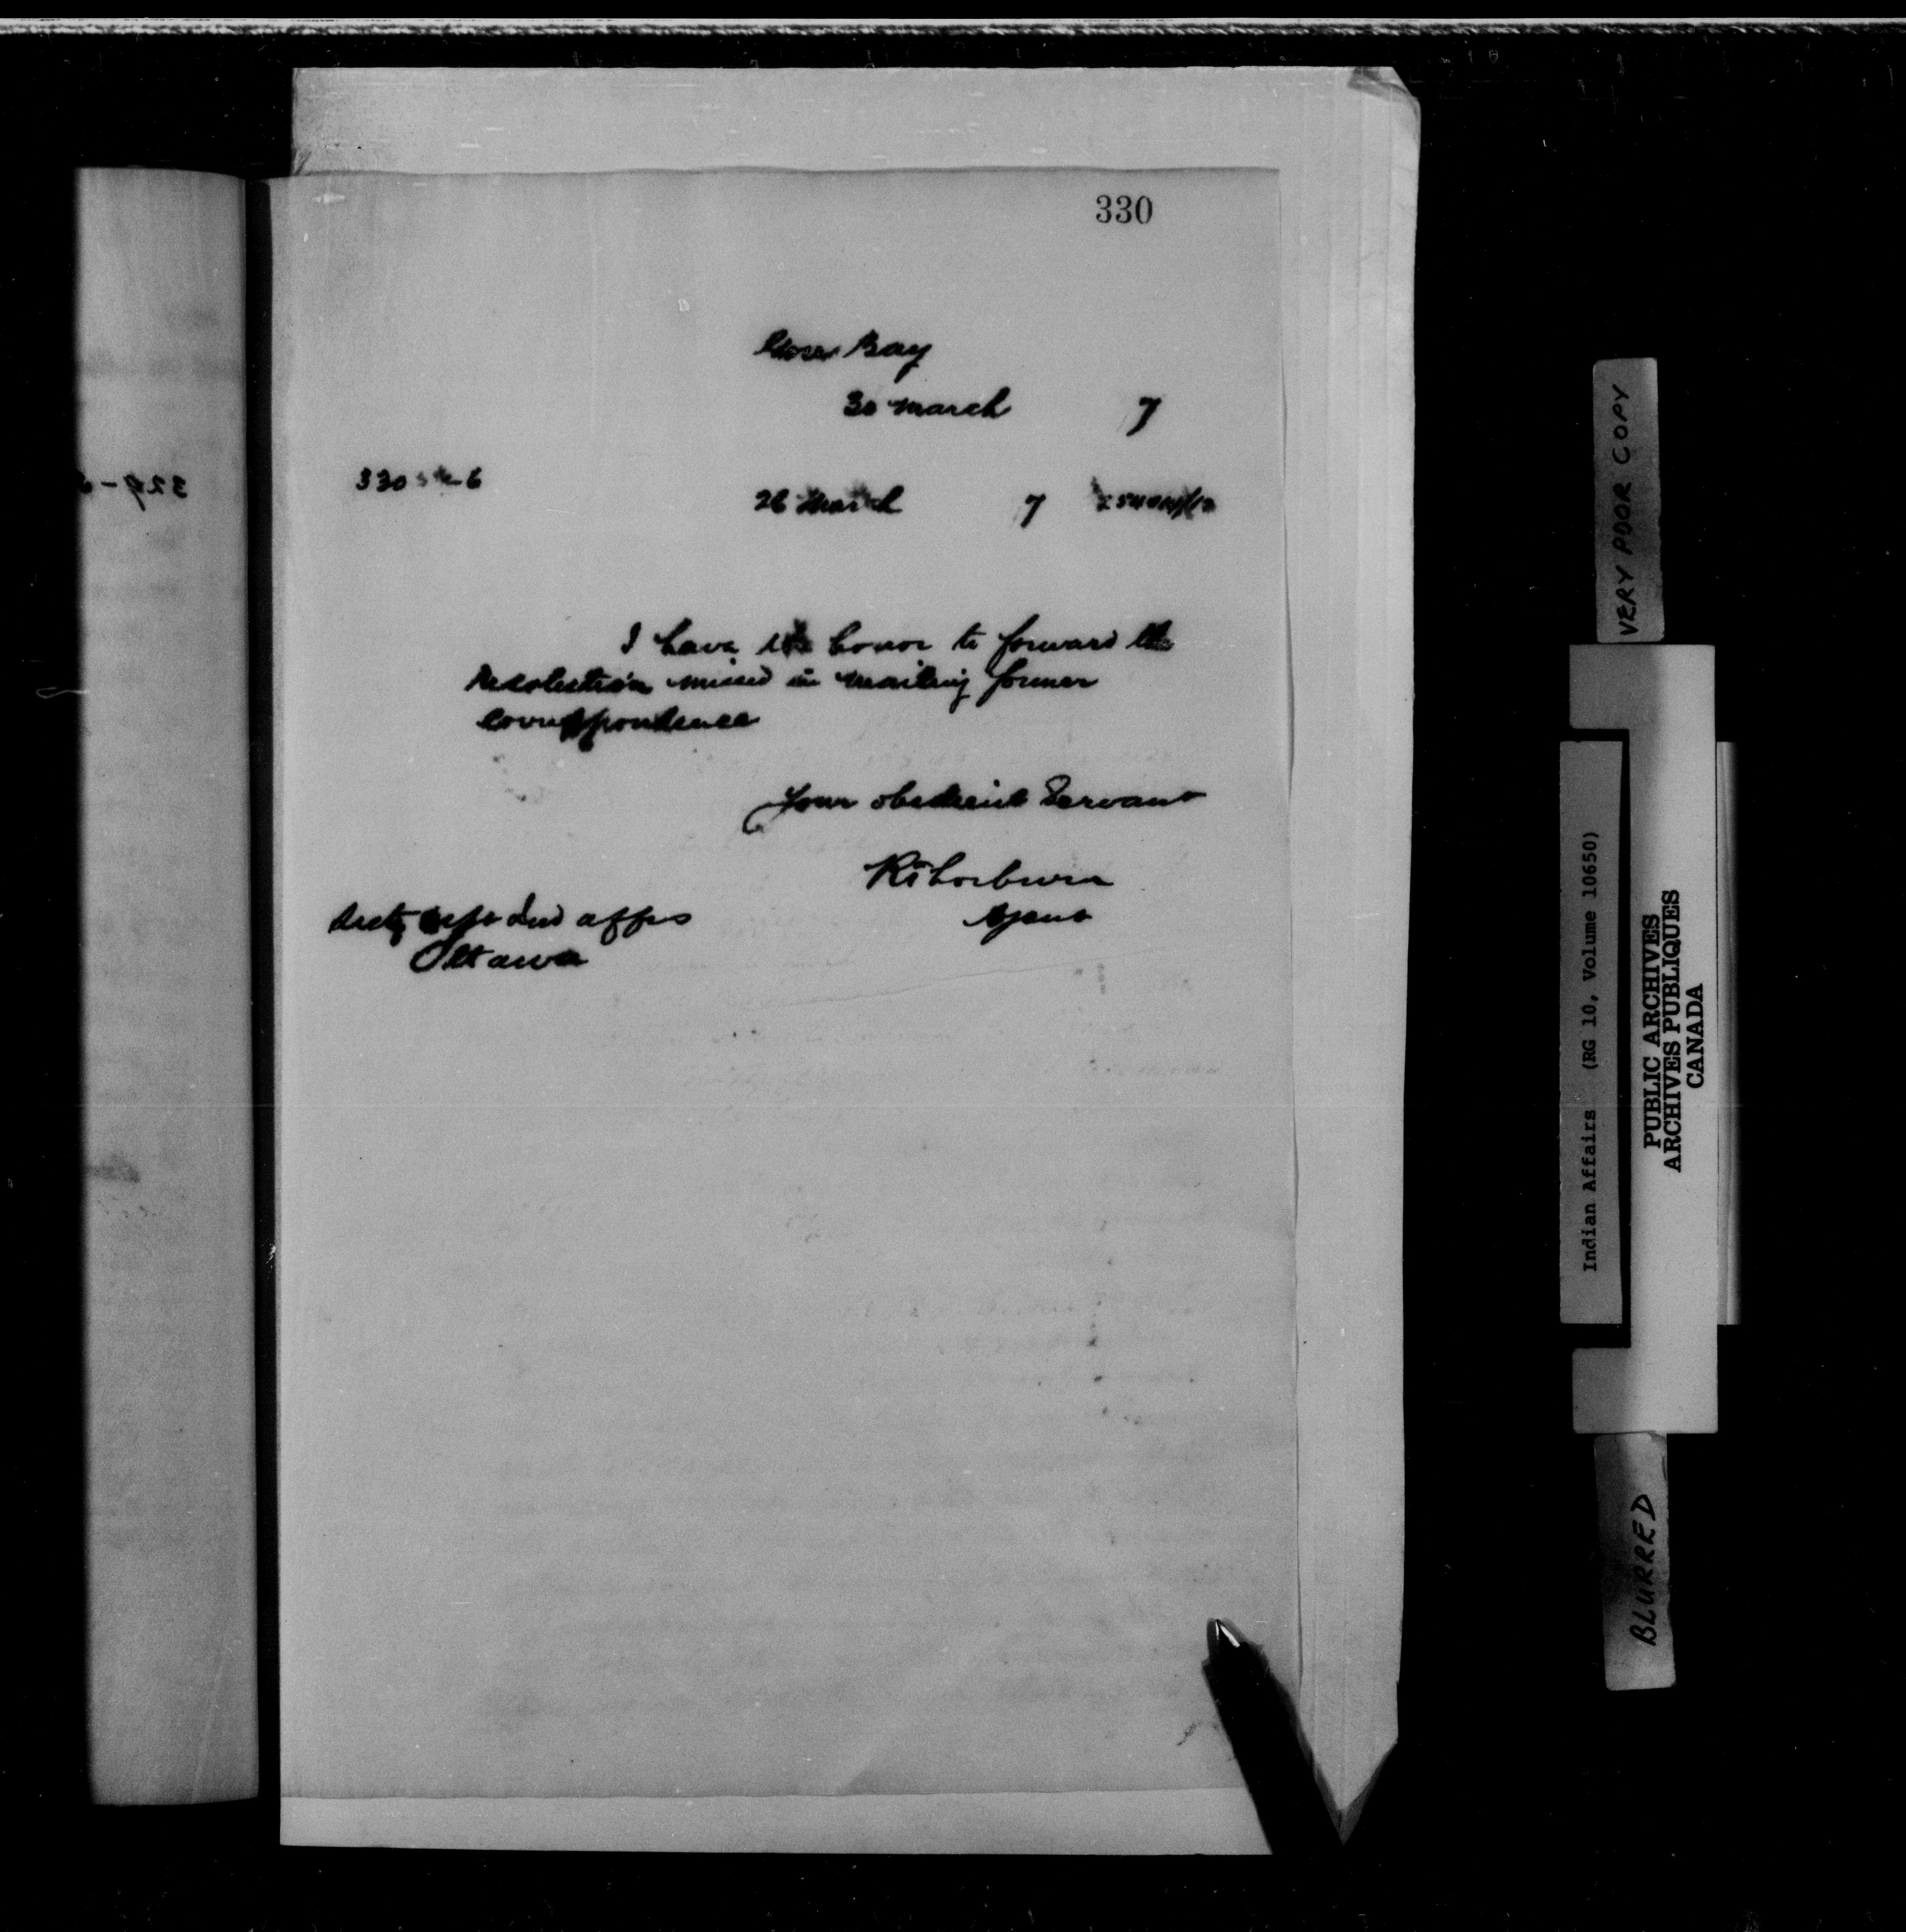 330
Gore Bay
30 March 7
330
26 March 7
I have the honor to forward the
Resolution missed in mailing former
correspondence
Your obedient Servant
R Thorburn
Agent
Secty Dept Ind affrs
Ottawa
329-
VERY POOR COPY
Indian Affairs (RG 10, Volume 10650)
PUBLIC ARCHIVES
ARCHIVES PUBLIQUES
CANADA
BLURRED